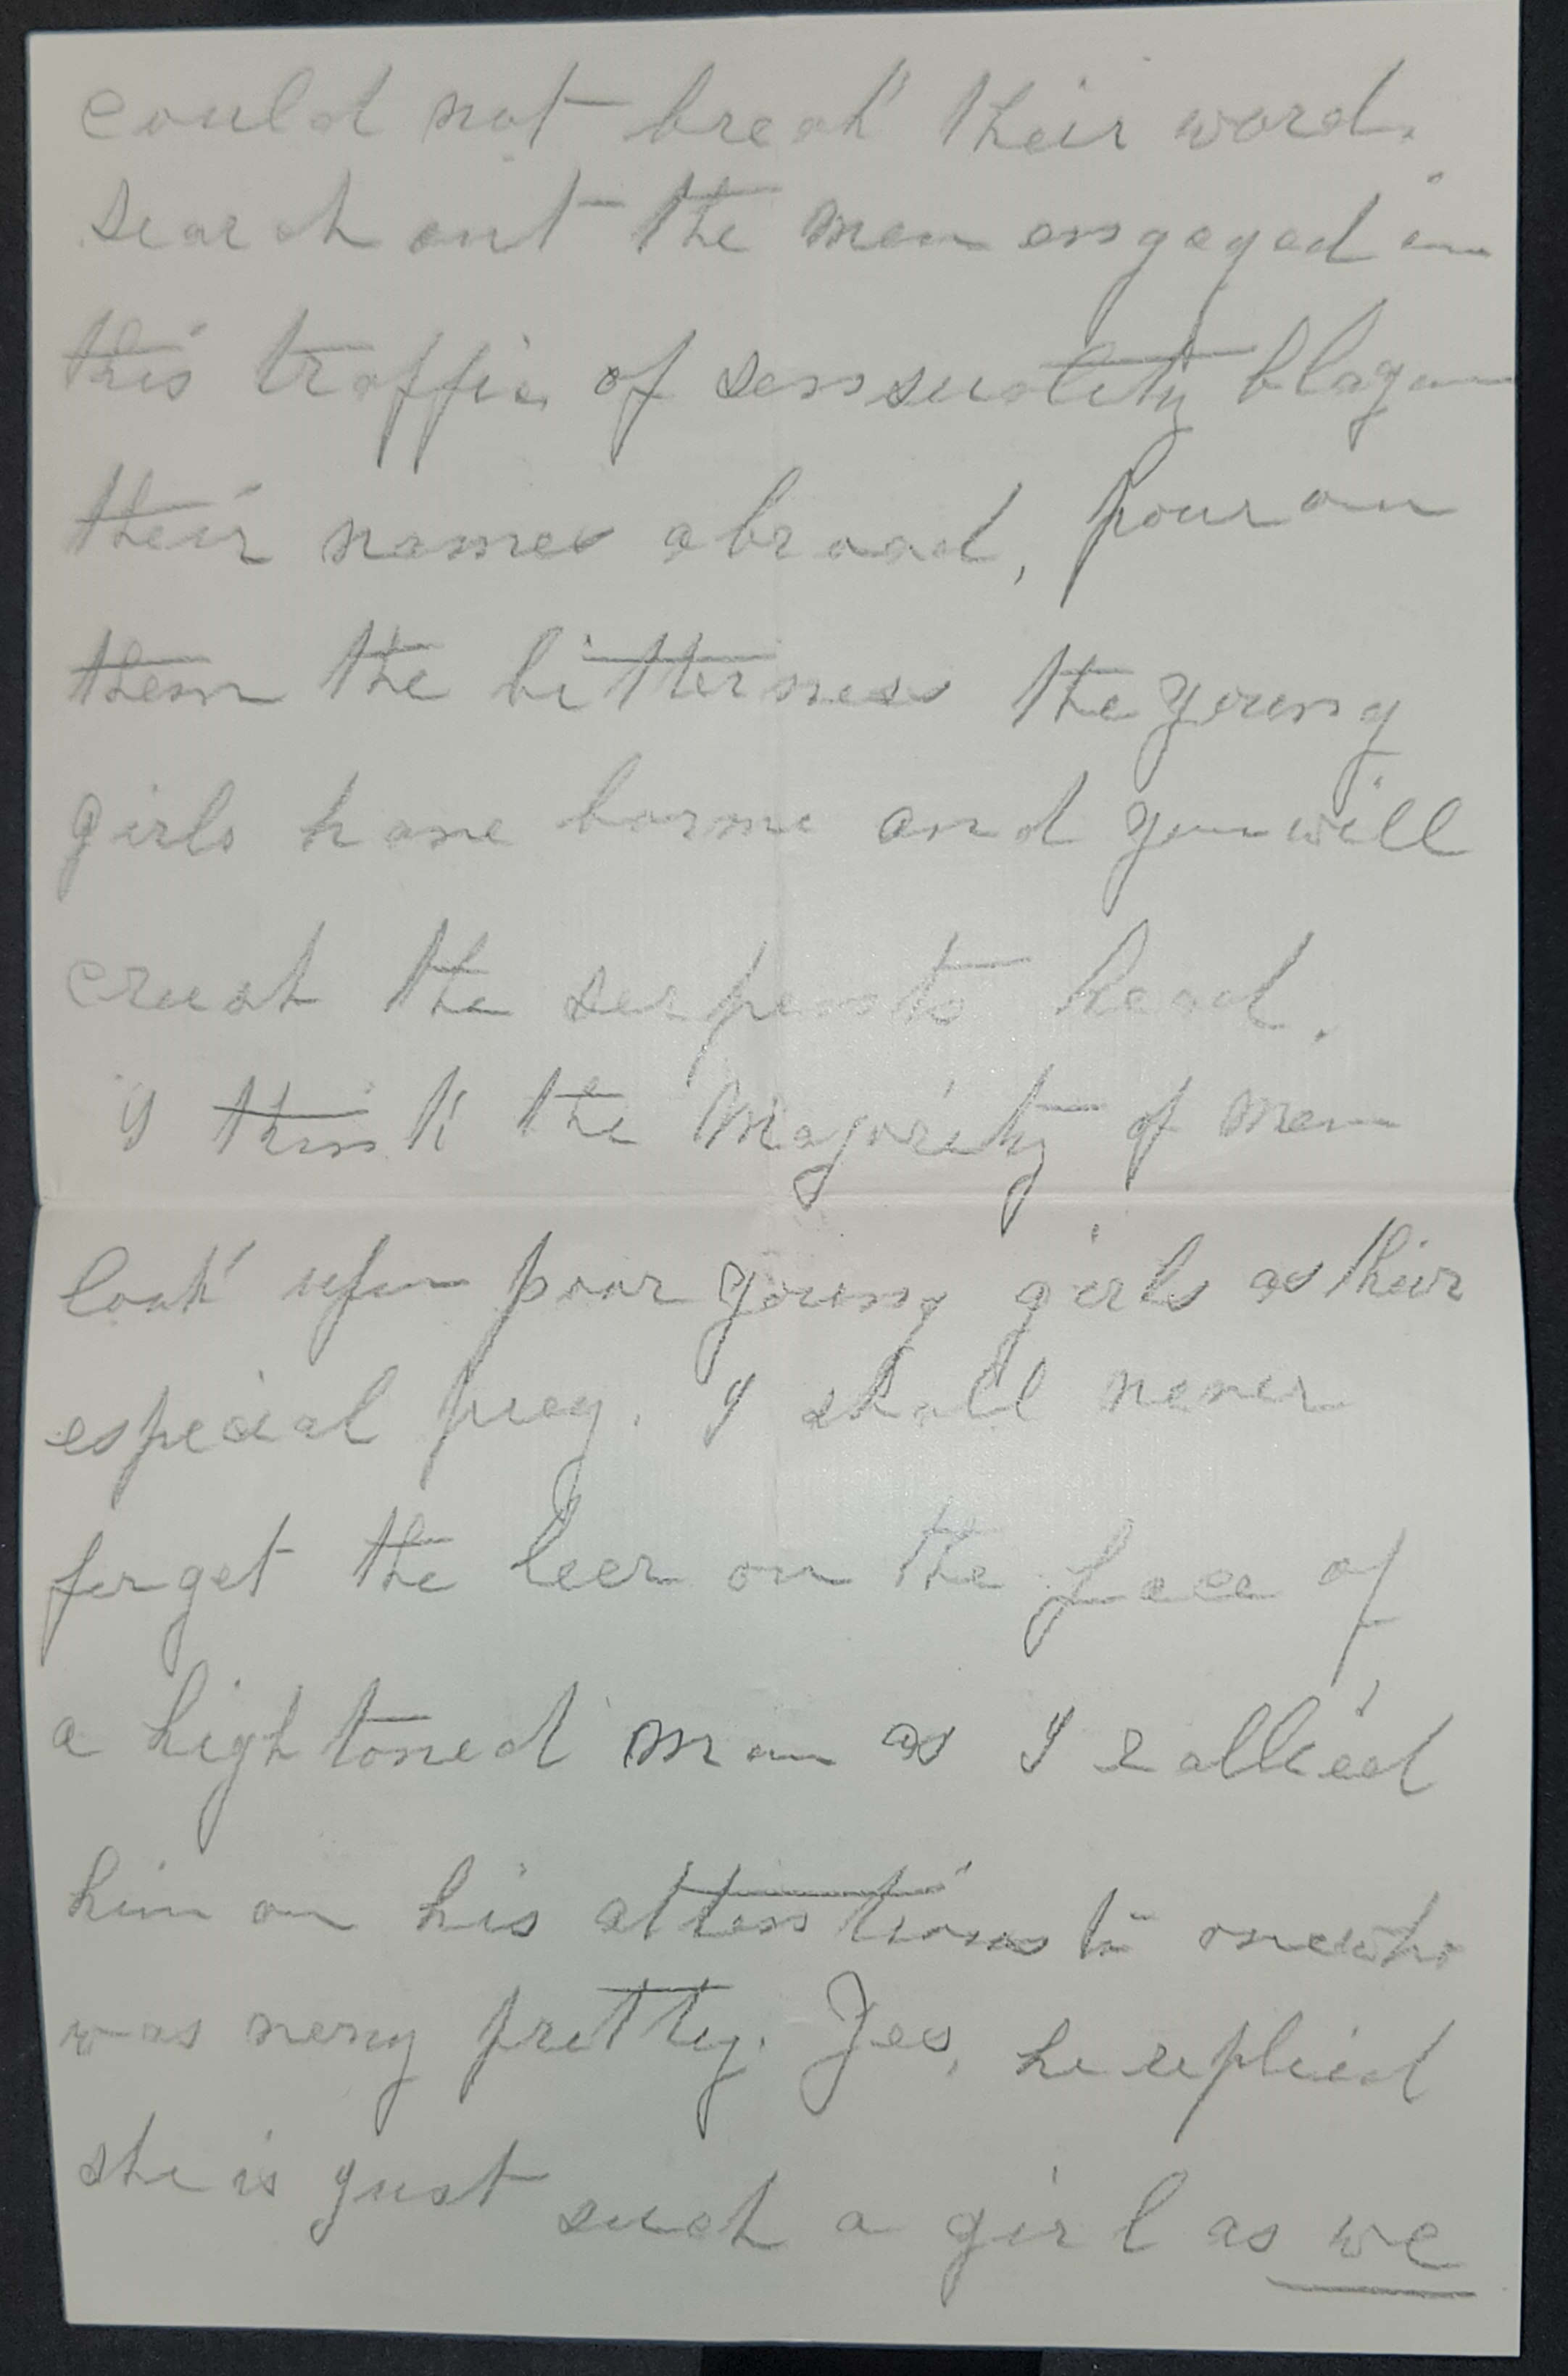 could not break their word.
search out the men engaged in
this traffic of sensuality blazon
their names abroad, pour on
them the bitterness the young
girls have borne and you will
crush the serpents head.
I think the majority of men
look upon poor young girls as their
especial prey. I shall never
forget the leer on the face of
a hightoned man as I rallied
him on his attentions to one who
was very pretty. Yes, he replied
she is just such a girl as we